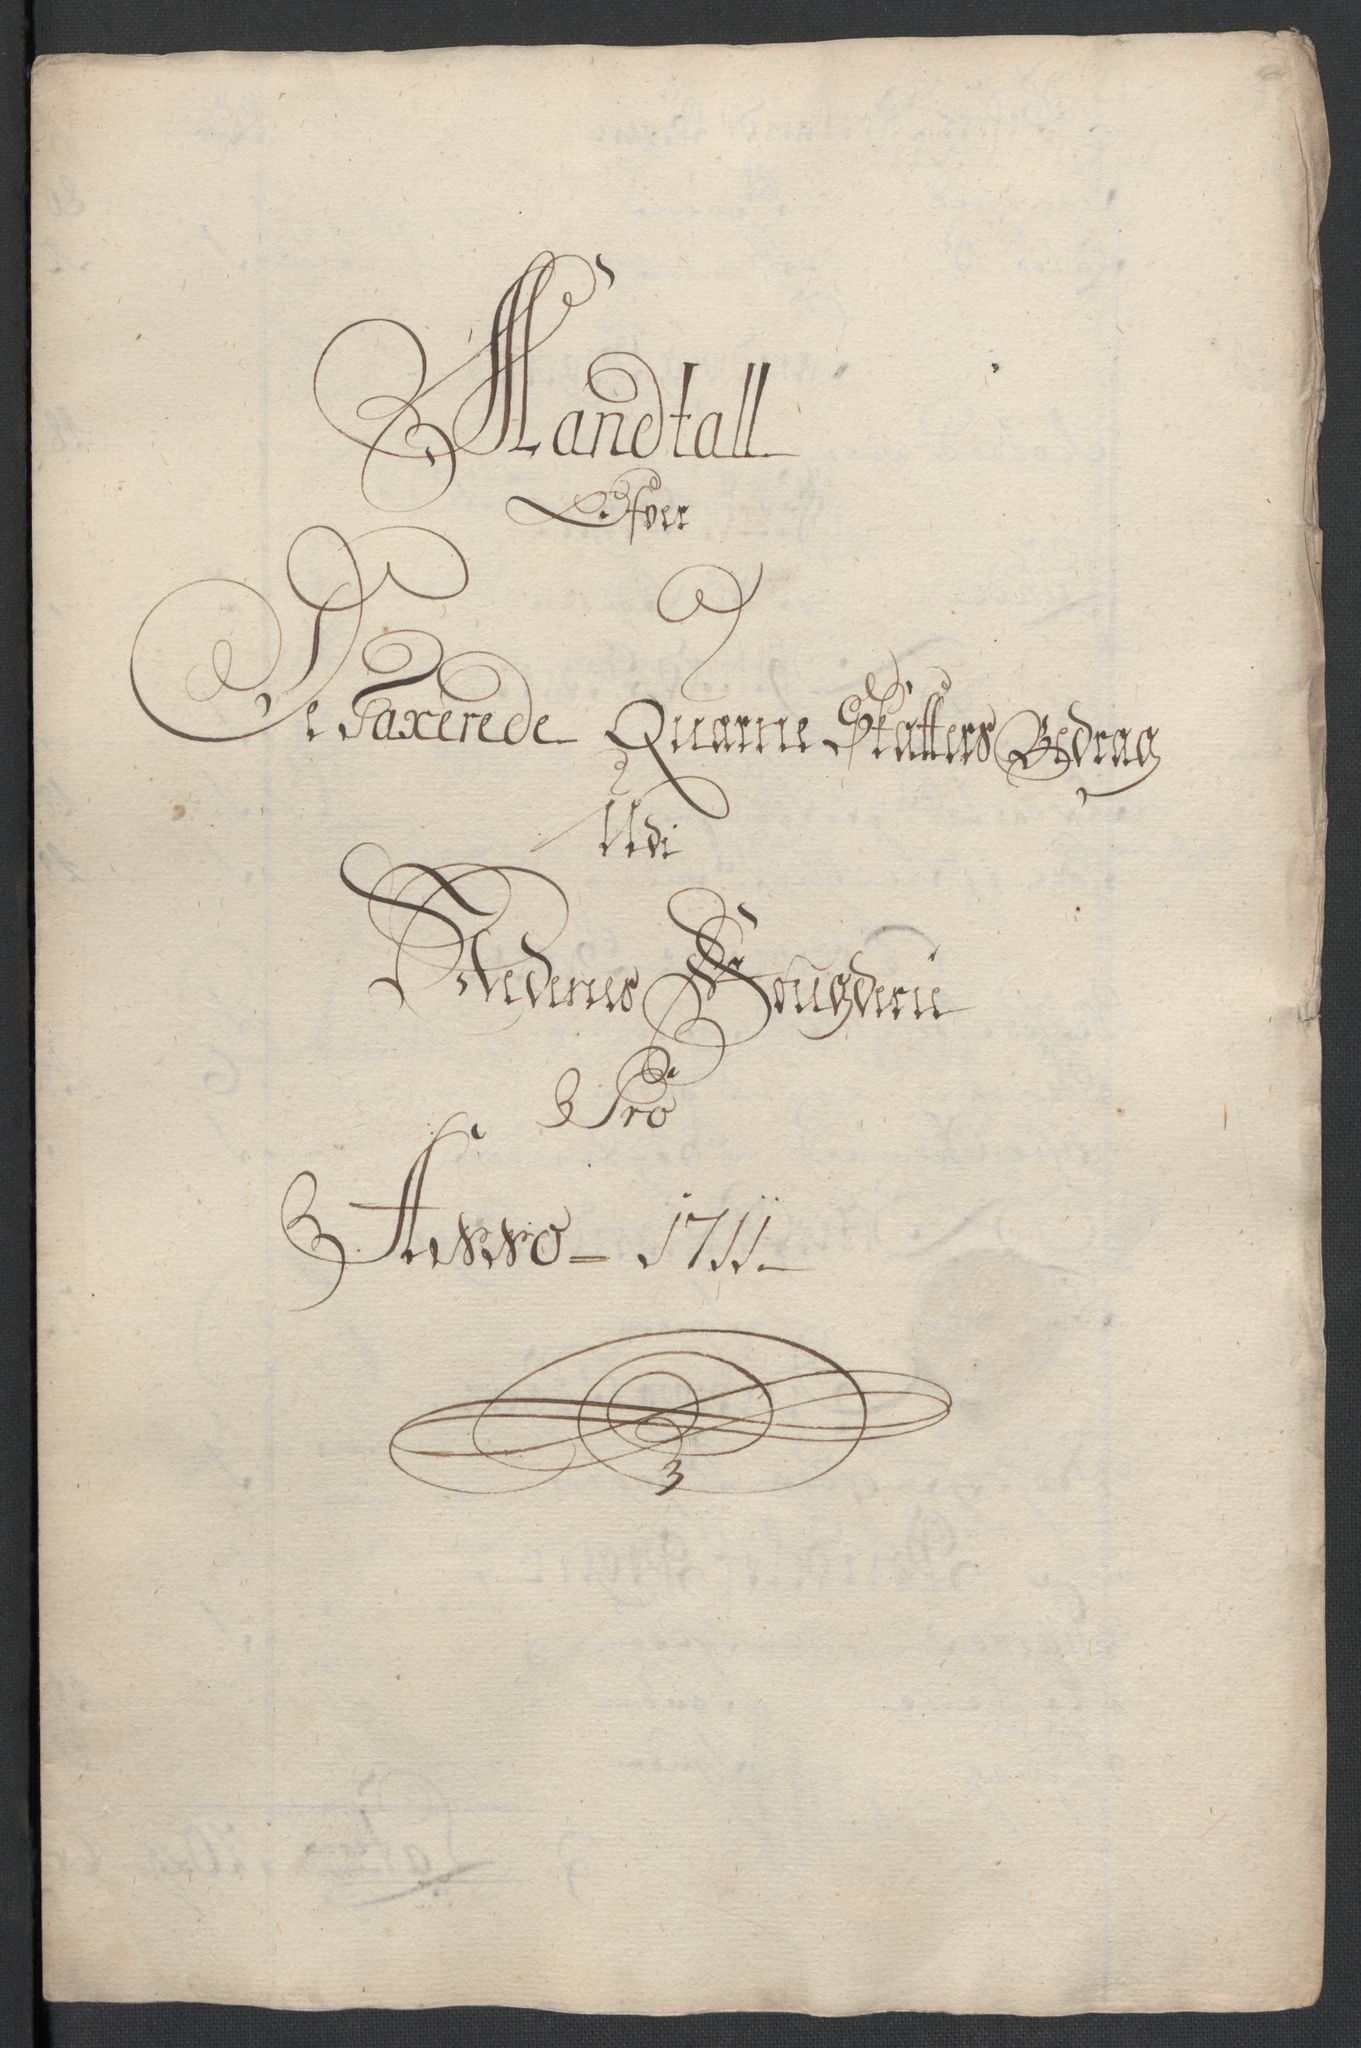 Mandtall
Ofver
De Taxerede Quarne Skatters Bedrag
Udi
Nedenes Fougderie
Pro
Anno 1711
3